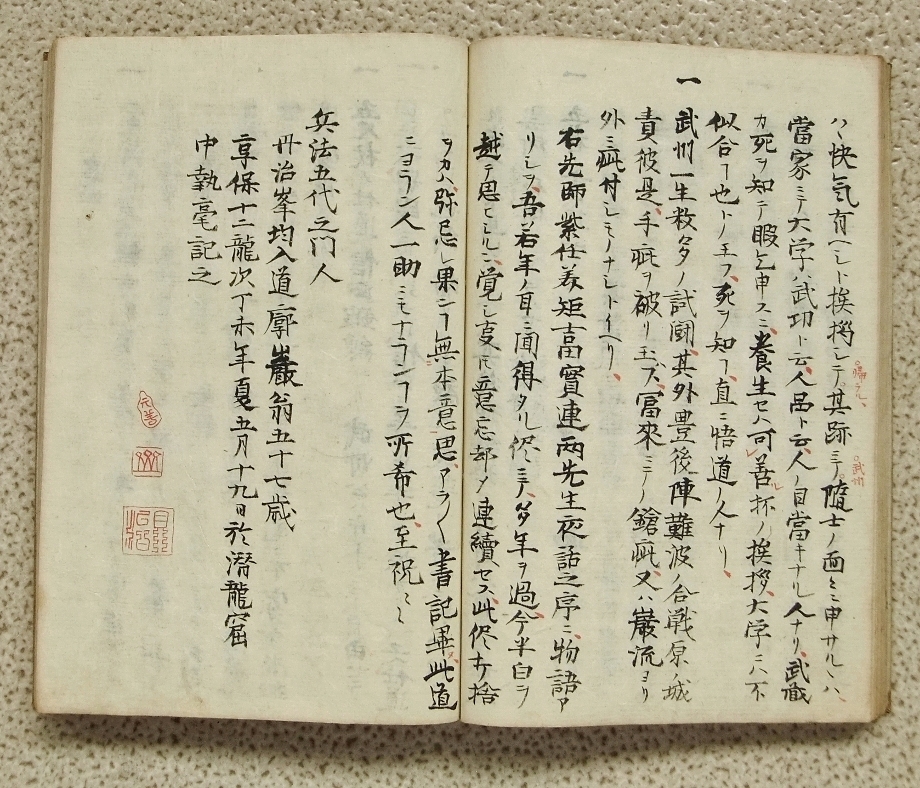 ハヽ快気有ヘシト挨拶シテ其跡ニテ随士ノ面々ニ申サルハ、
當家ニテノ大学ハ武功ト云、人品ト云、人ノ目當キナル人ナリ、武蔵
カ死ヲ知テ暇乞申スニ、養生セハ可善抔ノ挨拶、大学ニハ不
似合ヿ也トノ玉フ、死ヲ知ヿ、直ニ悟道ノ人ナリ、
一
武州一生数多ノ試闘、其外豊後陣難波ノ合戦原ノ城
責彼是、手疵ヲ破リ玉ハズ、冨來ニテノ鎗疵、又ハ巌流ヨリ
外ニ疵付シモノナシトイヘリ、
右先師紫仕美矩吉冨實連両先生夜話之序ニ物語ア
リシヲ、吾若年ノ耳ニ聞得タル侭ニテ、多年ヲ過、今半白ヲ
越テ思ヒシルニ、覚シ事モ意忘却メ連續セス、此侭大キ捨
ヲカハ、弥忌レ果ンヿ無本意思、アラ〱書記畢、此道
ニヨラン人一助ニモナランヿヲ所希也、至祝〻〻
兵法五代之門人
丹治峯均入道廓巖翁五十七歳
享保十二龍次丁未年夏五月十九日於潜龍窟
中執毫記之